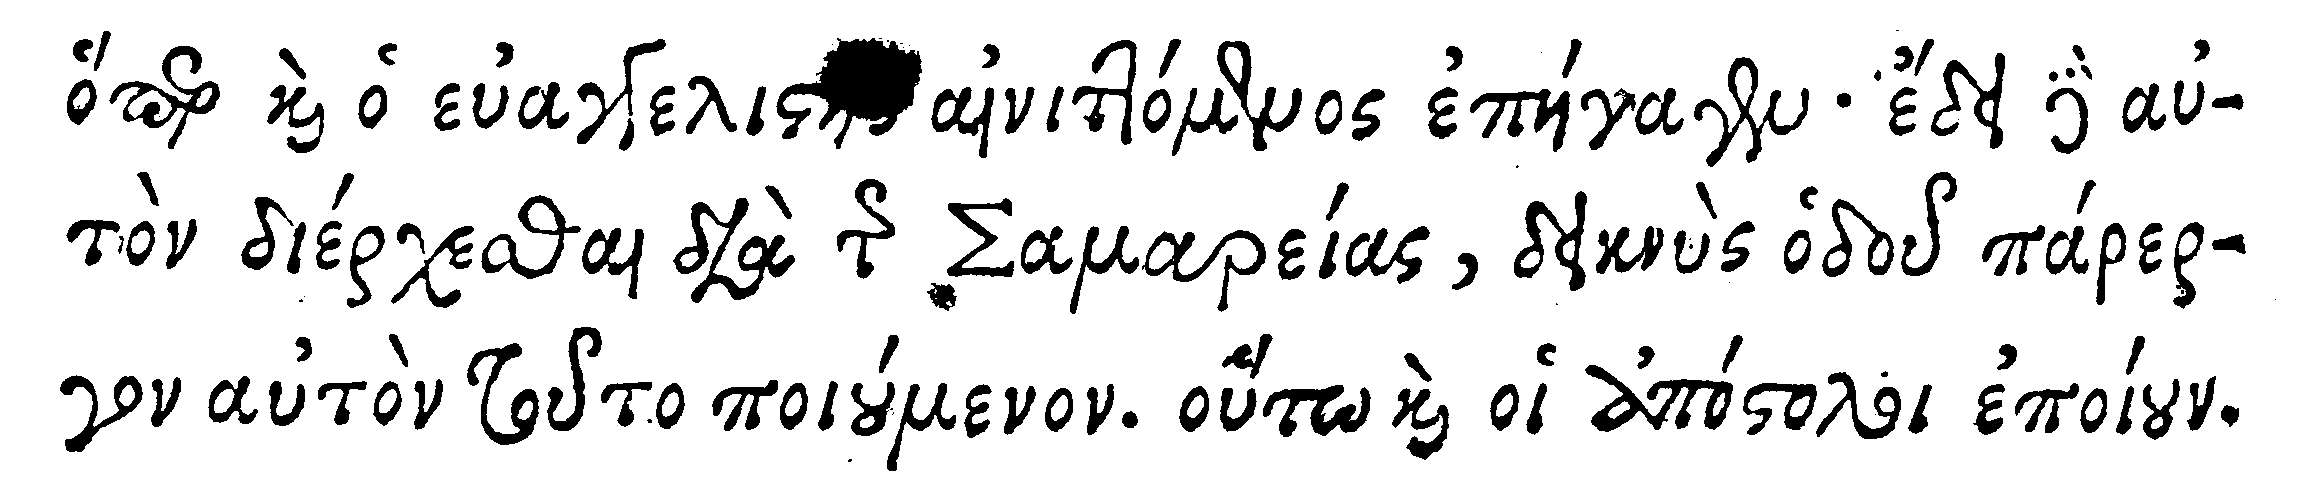 ὅπερ καὶ ὁ εὐαγγελιστὴς αἰνιττόμενος ἐπήγαγεν· ἔδει δὲ αὐ-
τὸν διέρχεσθαι διὰ τῆς Σαμαρείας, δεικνὺς ὁδοῦ πάρερ-
γον αὐτὸν τοῦτο ποιούμενον. οὕτω καὶ οἱ ἀπόστολοι ἐποίουν.